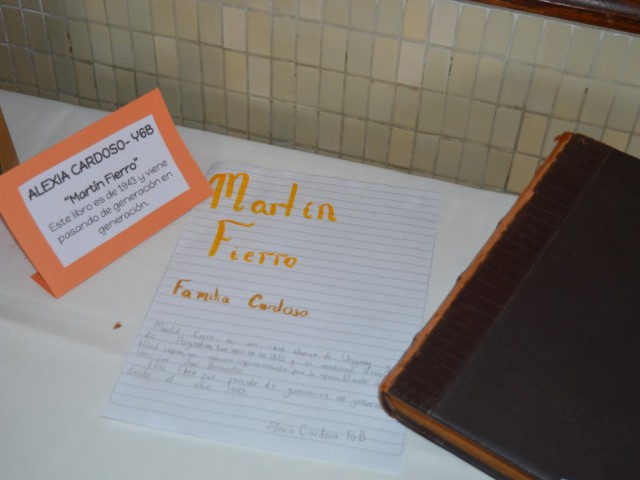 ALEXIA CARDOSO- Y6B
"Martín Fierro"
Este libro es de 1943 y viene
pasando de generación en
generación.
Martín
Fierro
Familia Cardoso
es un libro de Uruguay y
de
por José Hernández
Este libro fue pasado de generación en generación
desde el año 1943
Alexia Cardoso Y6B